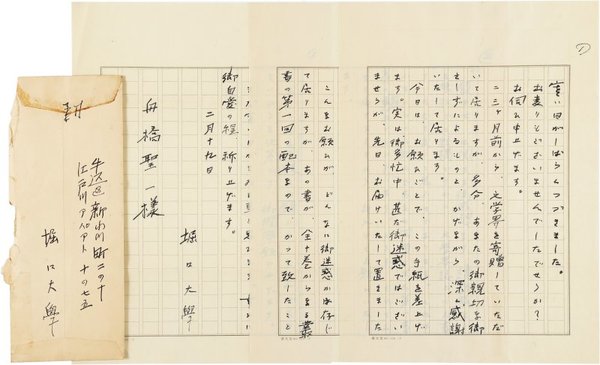 寒い日がしばらくつづきました。
お変りございませんでしたでせうか？
お伺ひ申上ます。
二三ヶ月前から、文学界を寄贈していただ
いて居りますが、多分、あなたの御親切な御
とし、かげながら、深く感謝
いたして居ります。
今日は、お願ひごとで、この手紙を差上げ
ます。実は御多忙中、甚だ御迷惑ではござい
ませうが、先日、お届けいたして置きました
こんなお願ひが、どんなに御迷惑かは存じ
て居りますが、あの書が、全十巻からなる叢
書の第一回の配本なので、かつて致したこと
御自愛の程、祈り上げます。
二月十九日
堀口大學
舟橋聖一様
封
牛込区新小川町二の十
江戸川アパアト 十の七五
堀口大學